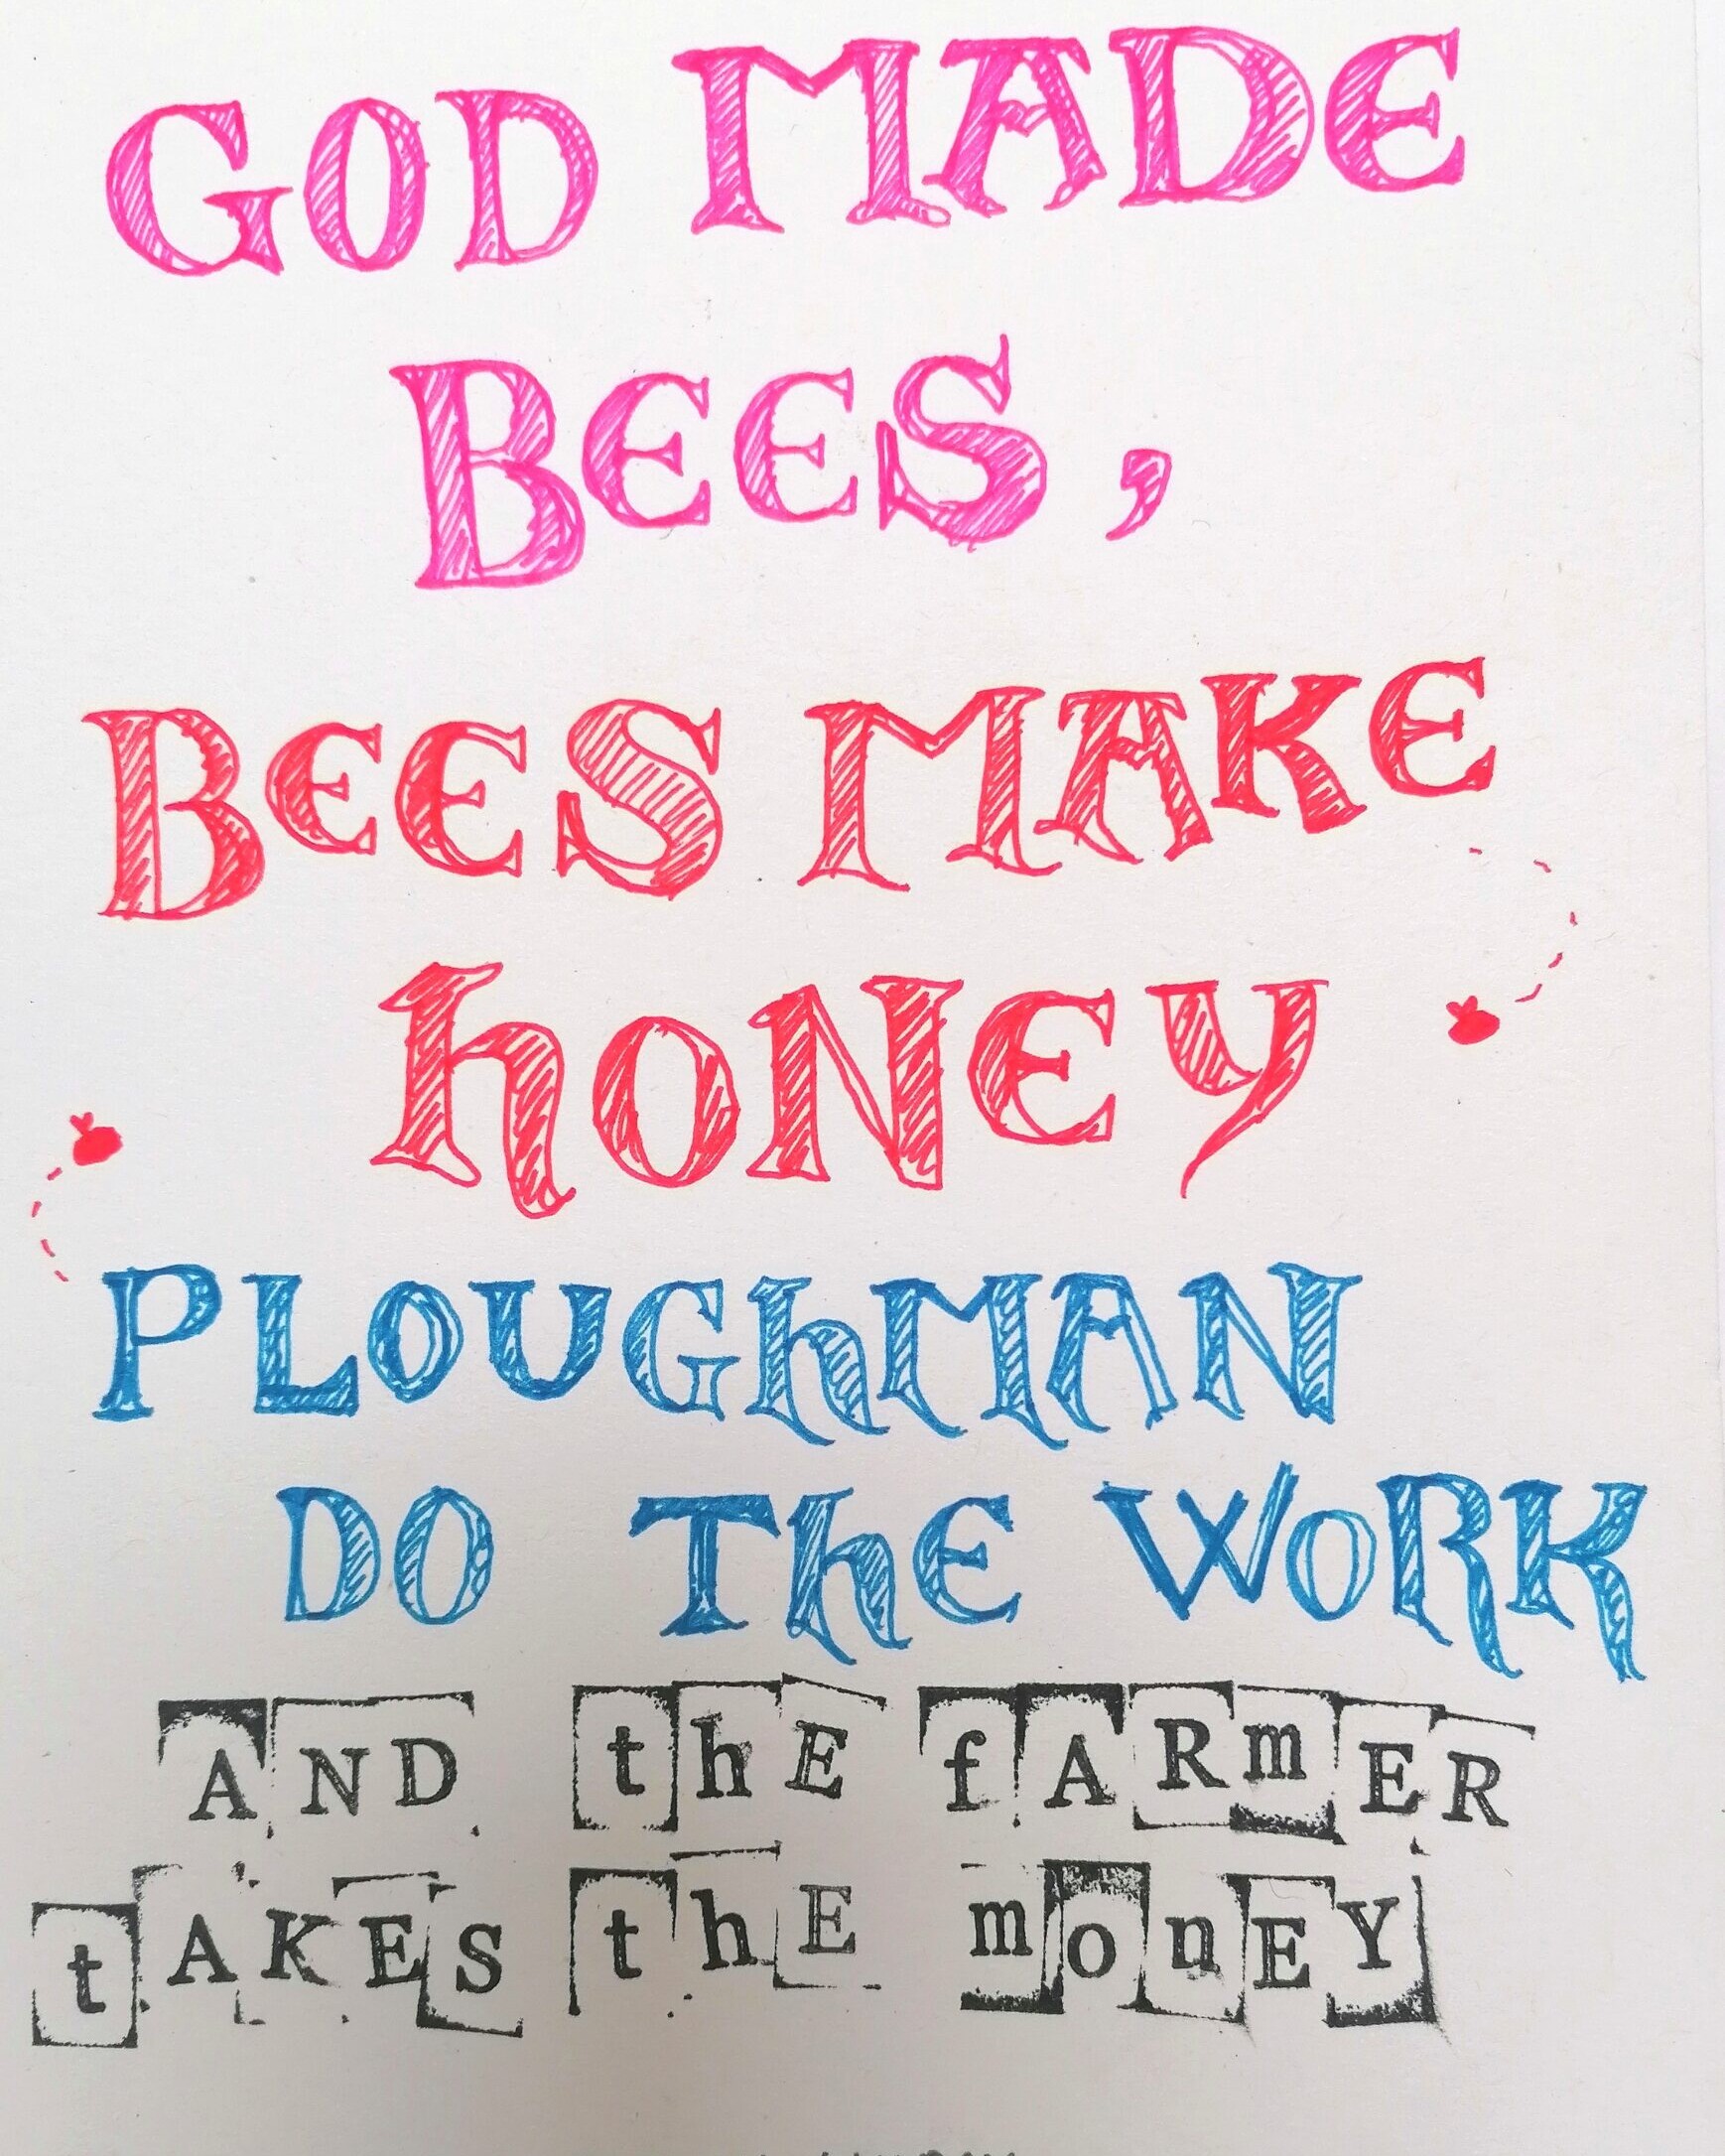 GOD MADE
BEES,
BEES MAKE
hONEY
PLOUGhMAN
DO ThE WORK
AND thE fARmER
tAKES thE monEY